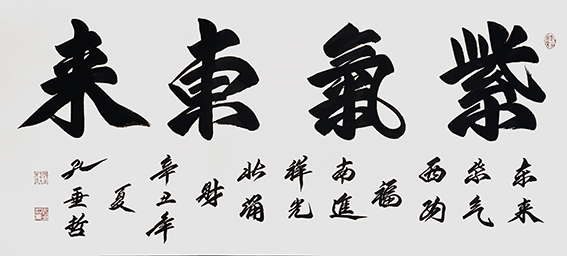 紫氣東来
东来
紫气
西
福
南進
祥光
北涌
财
辛丑年
夏
孔垂哲